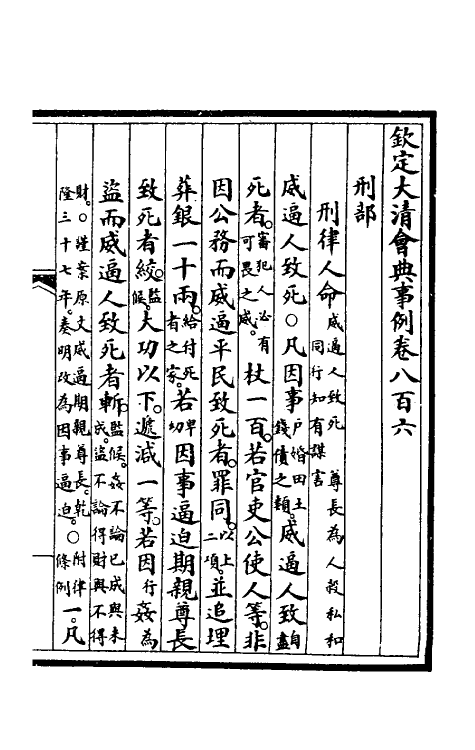 欽定大清會典事例卷八百六
刑部
刑律人命威逼人致死 尊長為人殺私和 同行知有謀害
威逼人致死〇凡因事戶婚田土錢債之類。威逼人致自盡
死者。審犯人必有可畏之威。杖一百。若官吏公使人等。非
因公務而威逼平民致死者。罪同。以上二項。並追埋
葬銀一十兩。給付死者之家。若卑幼因事逼迫期親尊長
致死者絞。監候。大功以下。遞減一等。若因行姦為
盜而威逼人致死者斬。監候。姦不論已成與未成。盜不論得財與不得
財。〇謹案原文威逼期親尊長。乾隆三十七年。奏明改為因事逼迫。〇附律條例一。凡